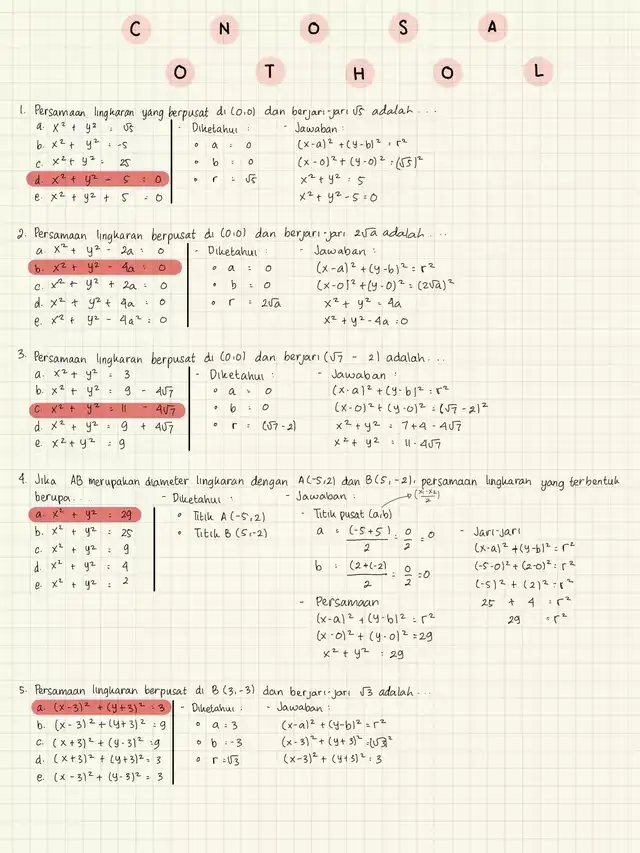 C N O S A
O T H O L
1. Persamaan lingkaran yang berpusat di (0,0) dan berjari-jari √5 adalah...
a. x² + y² = √5
b. x² + y² = -5
c. x² + y² = 25
d. x² + y² - 5 = 0
e. x² + y² + 5 = 0
- Diketahui :
o a = 0
o b = 0
o r = √5
- Jawaban :
(x-a)² + (y-b)² = r²
(x-0)² + (y-0)² = (√5)²
x² + y² = 5
x² + y² - 5 = 0
2. Persamaan lingkaran berpusat di (0,0) dan berjari-jari 2√a adalah...
a. x² + y² - 2a = 0
b. x² + y² - 4a = 0
c. x² + y² + 2a = 0
d. x² + y² + 4a = 0
e. x² + y² - 4a² = 0
- Diketahui :
o a = 0
o b = 0
o r = 2√a
- Jawaban :
(x-a)² + (y-b)² = r²
(x-0)² + (y-0)² = (2√a)²
x² + y² = 4a
x² + y² - 4a = 0
3. Persamaan lingkaran berpusat di (0,0) dan berjari (√7 - 2) adalah...
a. x² + y² = 3
b. x² + y² = 9 - 4√7
c. x² + y² = 11 - 4√7
d. x² + y² = 9 + 4√7
e. x² + y² = 9
- Diketahui :
o a = 0
o b = 0
o r = (√7-2)
- Jawaban :
(x-a)² + (y-b)² = r²
(x-0)² + (y-0)² = (√7-2)²
x² + y² = 7+4 - 4√7
x² + y² = 11-4√7
4. Jika AB merupakan diameter lingkaran dengan A(-5,2) dan B(5,-2), persamaan lingkaran yang terbentuk
berupa...
a. x² + y² = 29
b. x² + y² = 25
c. x² + y² = 9
d. x² + y² = 4
e. x² + y² = 2
- Diketahui :
o Titik A(-5,2)
o Titik B(5,-2)
- Jawaban :
- Titik pusat (a,b)
a = (-5+5)/2 = 0/2 = 0
b = (2+(-2))/2 = 0/2 = 0
- Persamaan
(x-a)² + (y-b)² = r²
(x-0)² + (y-0)² = 29
x² + y² = 29
- Jari-jari
(x-a)² + (y-b)² = r²
(-5-0)² + (2-0)² = r²
(-5)² + (2)² = r²
25 + 4 = r²
29 = r²
5. Persamaan lingkaran berpusat di B(3,-3) dan berjari-jari √3 adalah...
a. (x-3)² + (y+3)² = 3
b. (x-3)² + (y+3)² = 9
c. (x+3)² + (y-3)² = 9
d. (x+3)² + (y+3)² = 3
e. (x-3)² + (y-3)² = 3
- Diketahui :
o a = 3
o b = -3
o r = √3
- Jawaban :
(x-a)² + (y-b)² = r²
(x-3)² + (y+3)² = (√3)²
(x-3)² + (y+3)² = 3